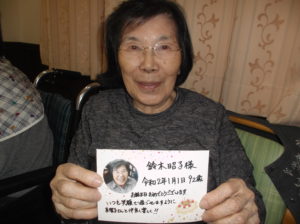 鈴木昭子様
令和2年1月1日 92歳
お誕生日おめでとうございます
いつも笑顔で過ごせますように